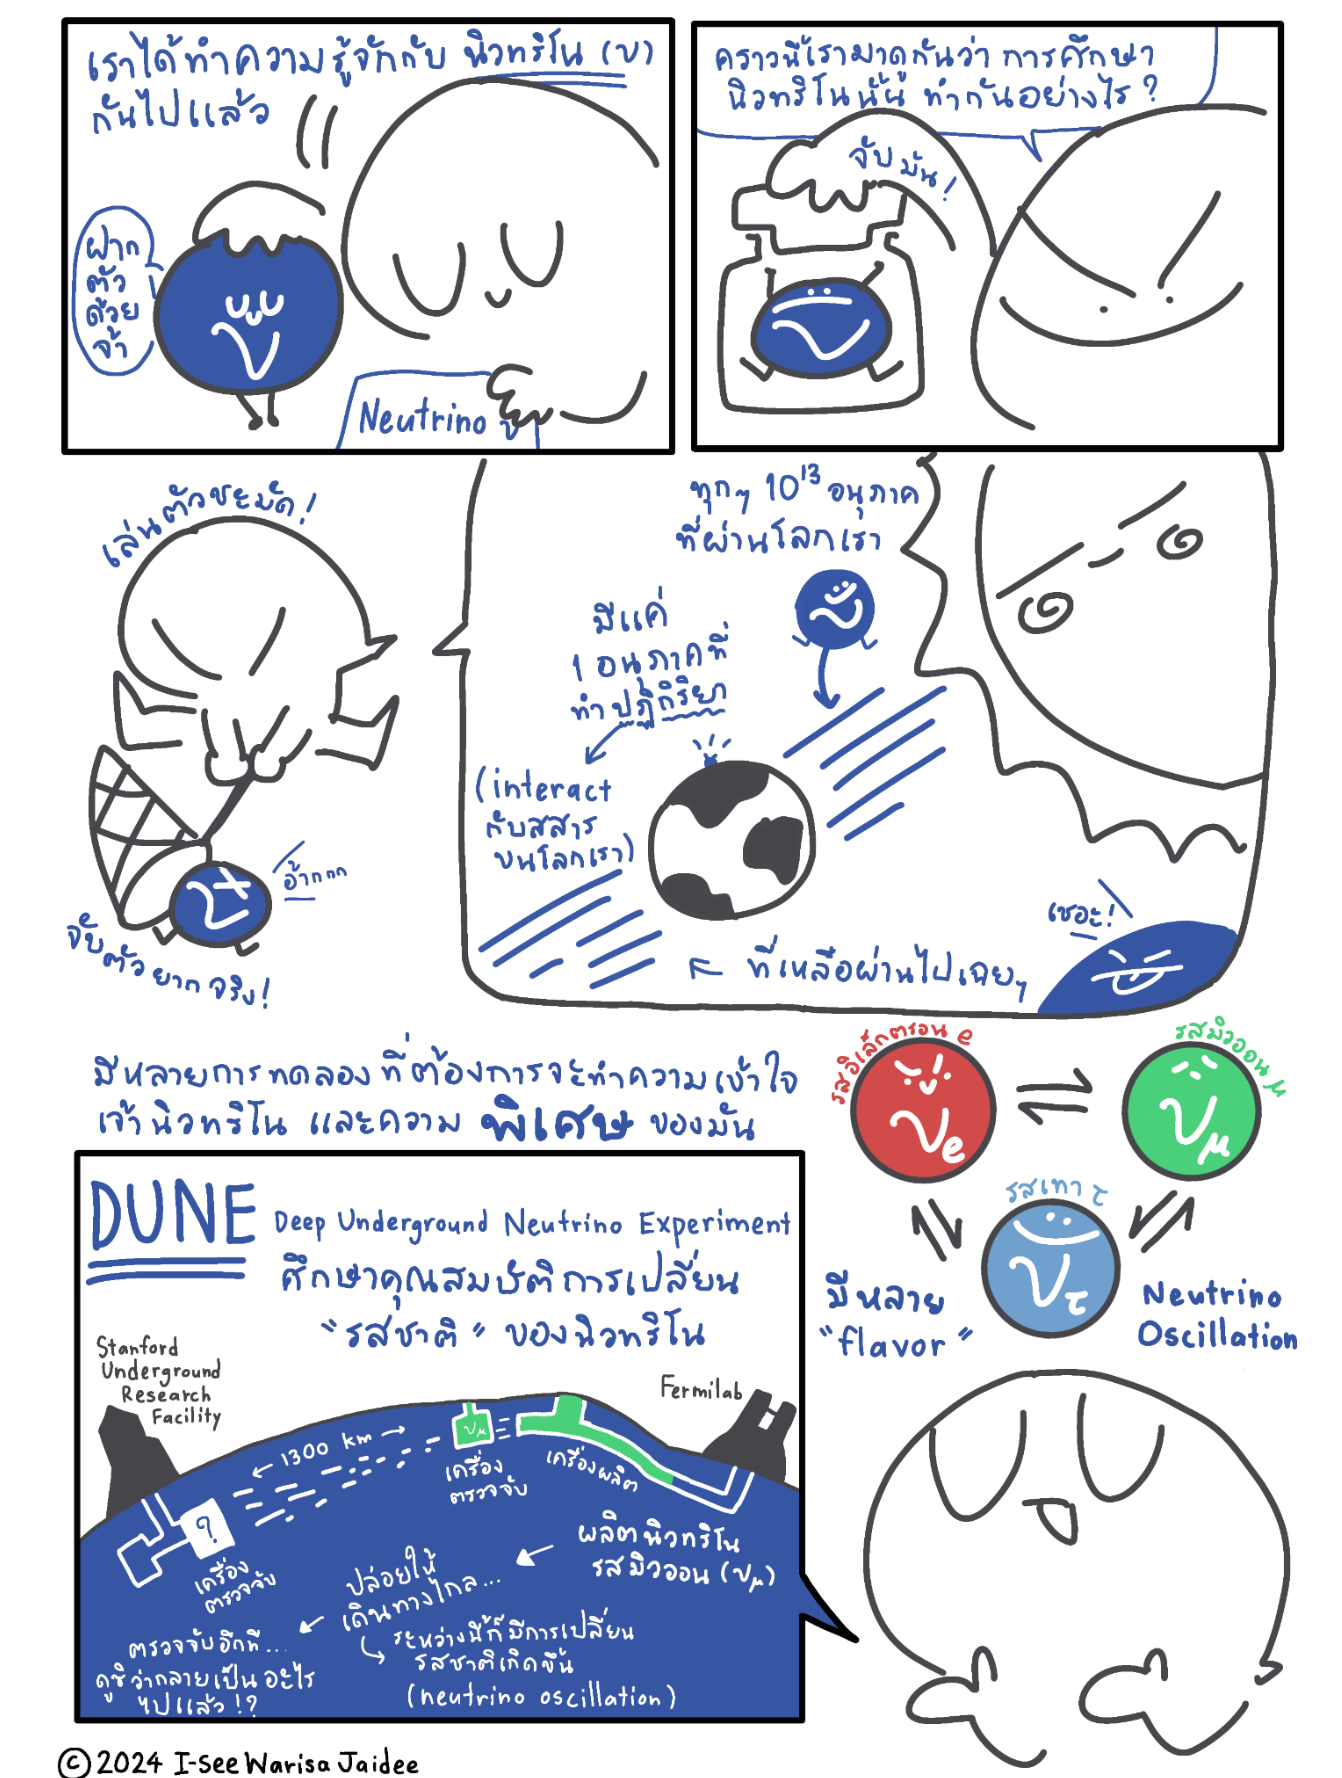 เราได้ทำความรู้จักกับ นิวทริโน (ν)
กันไปแล้ว
ฝาก
ตัว
ด้วย
จ้า
ν
Neutrino ν
คราวนี้เรามาดูกันว่า การศึกษา
นิวทริโนนั้น ทำกันอย่างไร ?
จับมัน !
ν
เล่นตัวชะมัด !
ν
อ๊ากกก
จับตัวยากจริง !
ทุกๆ 10¹³ อนุภาค
ที่ผ่านโลกเรา
ν
มีแค่
1 อนุภาคที่
ทำปฏิกิริยา
(interact
กับสสาร
บนโลกเรา)
เชอะ !
ที่เหลือผ่านไปเฉยๆ
มีหลายการทดลองที่ต้องการจะทำความเข้าใจ
เจ้านิวทริโน และความ พิเศษ ของมัน
รสอิเล็กตรอน e
νe
รสมิวออน μ
νμ
รสเทา τ
ντ
มีหลาย
"flavor"
Neutrino
Oscillation
DUNE Deep Underground Neutrino Experiment
ศึกษาคุณสมบัติการเปลี่ยน
"รสชาติ" ของนิวทริโน
Stanford
Underground
Research
Facility
Fermilab
← 1300 km →
νμ
เครื่อง
ตรวจจับ
เครื่องผลิต
?
เครื่อง
ตรวจจับ
ผลิตนิวทริโน
รสมิวออน (νμ)
ปล่อยให้
เดินทางไกล...
ระหว่างนี้ก็มีการเปลี่ยน
รสชาติเกิดขึ้น
(neutrino oscillation)
ตรวจจับอีกที...
ดูซิว่ากลายเป็นอะไร
ไปแล้ว !?
© 2024 I-See Warisa Jaidee